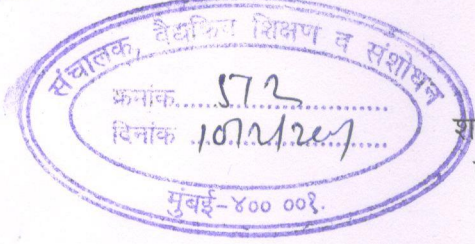 संचालक, वैद्यकिय शिक्षण व संशोधन
क्रमांक.....572.....
दिनांक
मुंबई-४०० ००१.